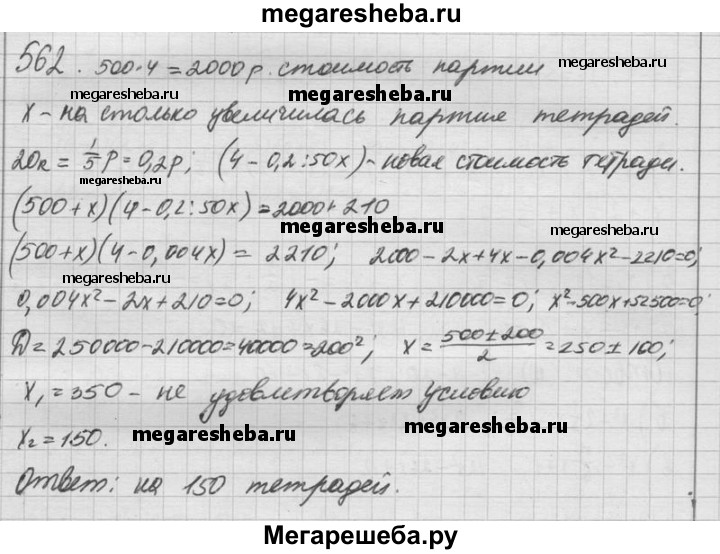 megaresheba.ru
562. 500·4=2000р. стоимость партии
megaresheba.ru megaresheba.ru megaresheba.ru
х – на столько увеличилась партия тетрадей.
20к = 1/5 р = 0,2р; (4 – 0,2:50х) – новая стоимость тетради.
megaresheba.ru
(500+х)(4–0,2:50х)=2000+210
megaresheba.ru megaresheba.ru
(500+х)(4–0,004х) = 2210; 2000–2х+4х–0,004х²–2210=0;
megaresheba.ru
0,004х²–2х+210=0; 4х²–2000х+210000=0; х²–500х+52500=0;
megaresheba.ru
D=250000–210000=40000=200²; х=(500±200)/2=250±100;
megaresheba.ru megaresheba.ru
х₁=350 – не удовлетворяет условию
х₂=150.
megaresheba.ru megaresheba.ru
Ответ: на 150 тетрадей.
Мегарешеба.ру